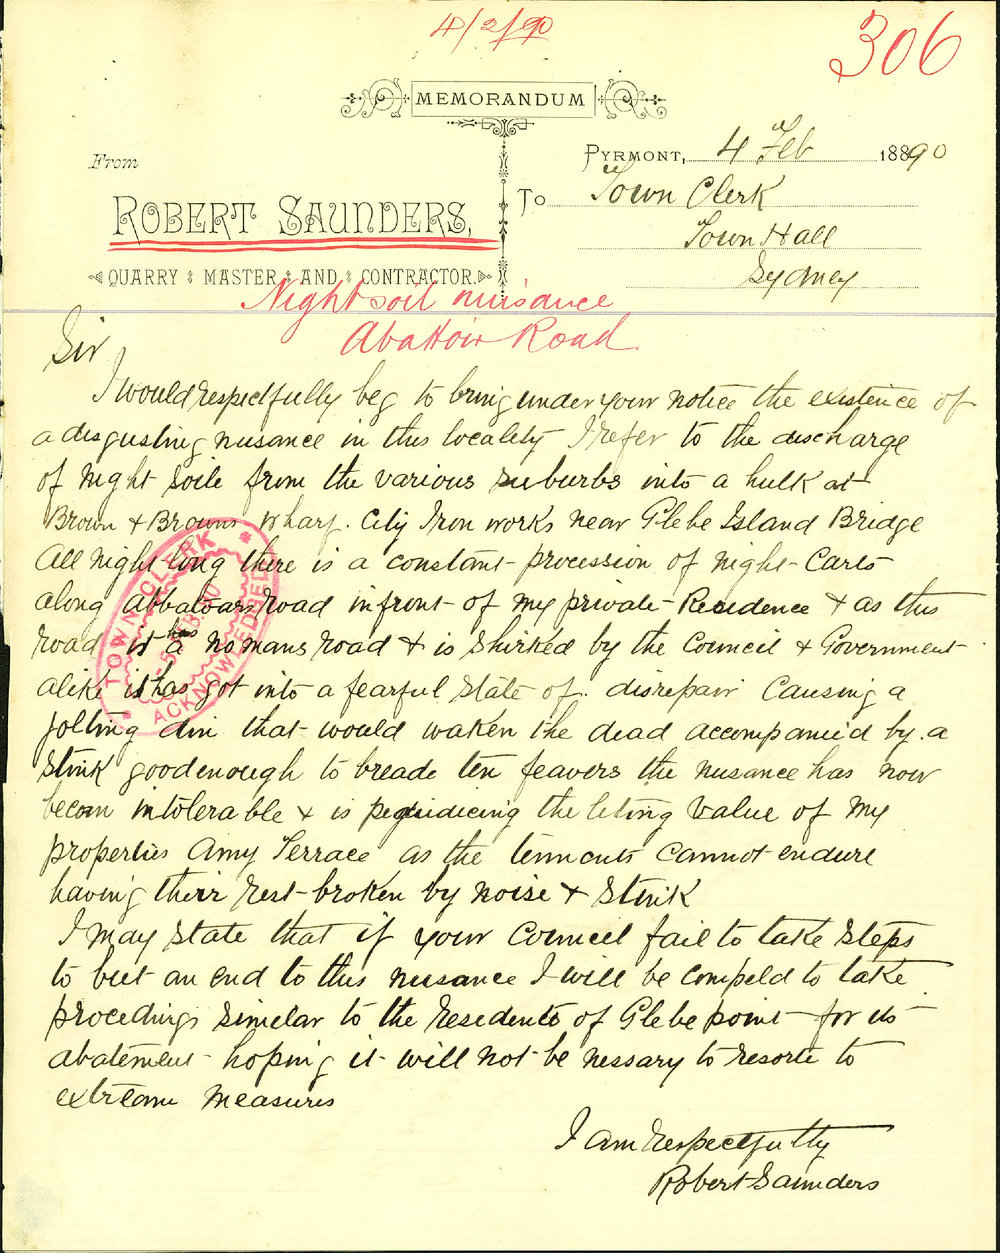 4/2/90
306
MEMORANDUM
From
PYRMONT, 4 Feb 18890
ROBERT SAUNDERS,
To Town Clerk
Town Hall
QUARRY MASTER AND CONTRACTOR.
Sydney
Night soil nuisance
Abattoir Road
Sir
I would respectfully beg to bring under your notice the existence of
a disgusting nusance in this locality I refer to the discharge
of night soile from the various suburbs into a hulk at
Brown & Browns Wharf. City Iron works near Glebe Island Bridge
All night long there is a constant procession of night Carts
along Abbatoars road infront of my private Recidence & as this
road is a nomans road & is shirked by the Council & Government
alike it has got into a fearful state of disrepair causing a
jolting din that would waken the dead accompanied by a
stink good enough to breade ten feavers the nusance has now
becom intolerable & is pejudicing the leting value of my
properties Amy Terrace as the tennents cannot endure
having their rest broken by noise & stink
I may state that if your Council fail to take steps
to but an end to this nusance I will be compeld to take
procedings similar to the residents of Glebe point for its
abatement hoping it will not be nessary to resorte to
extreame measures
I am respectfully
Robert Saunders
TOWN CLERK
5 FEB. 90
ACKNOWLEDGED